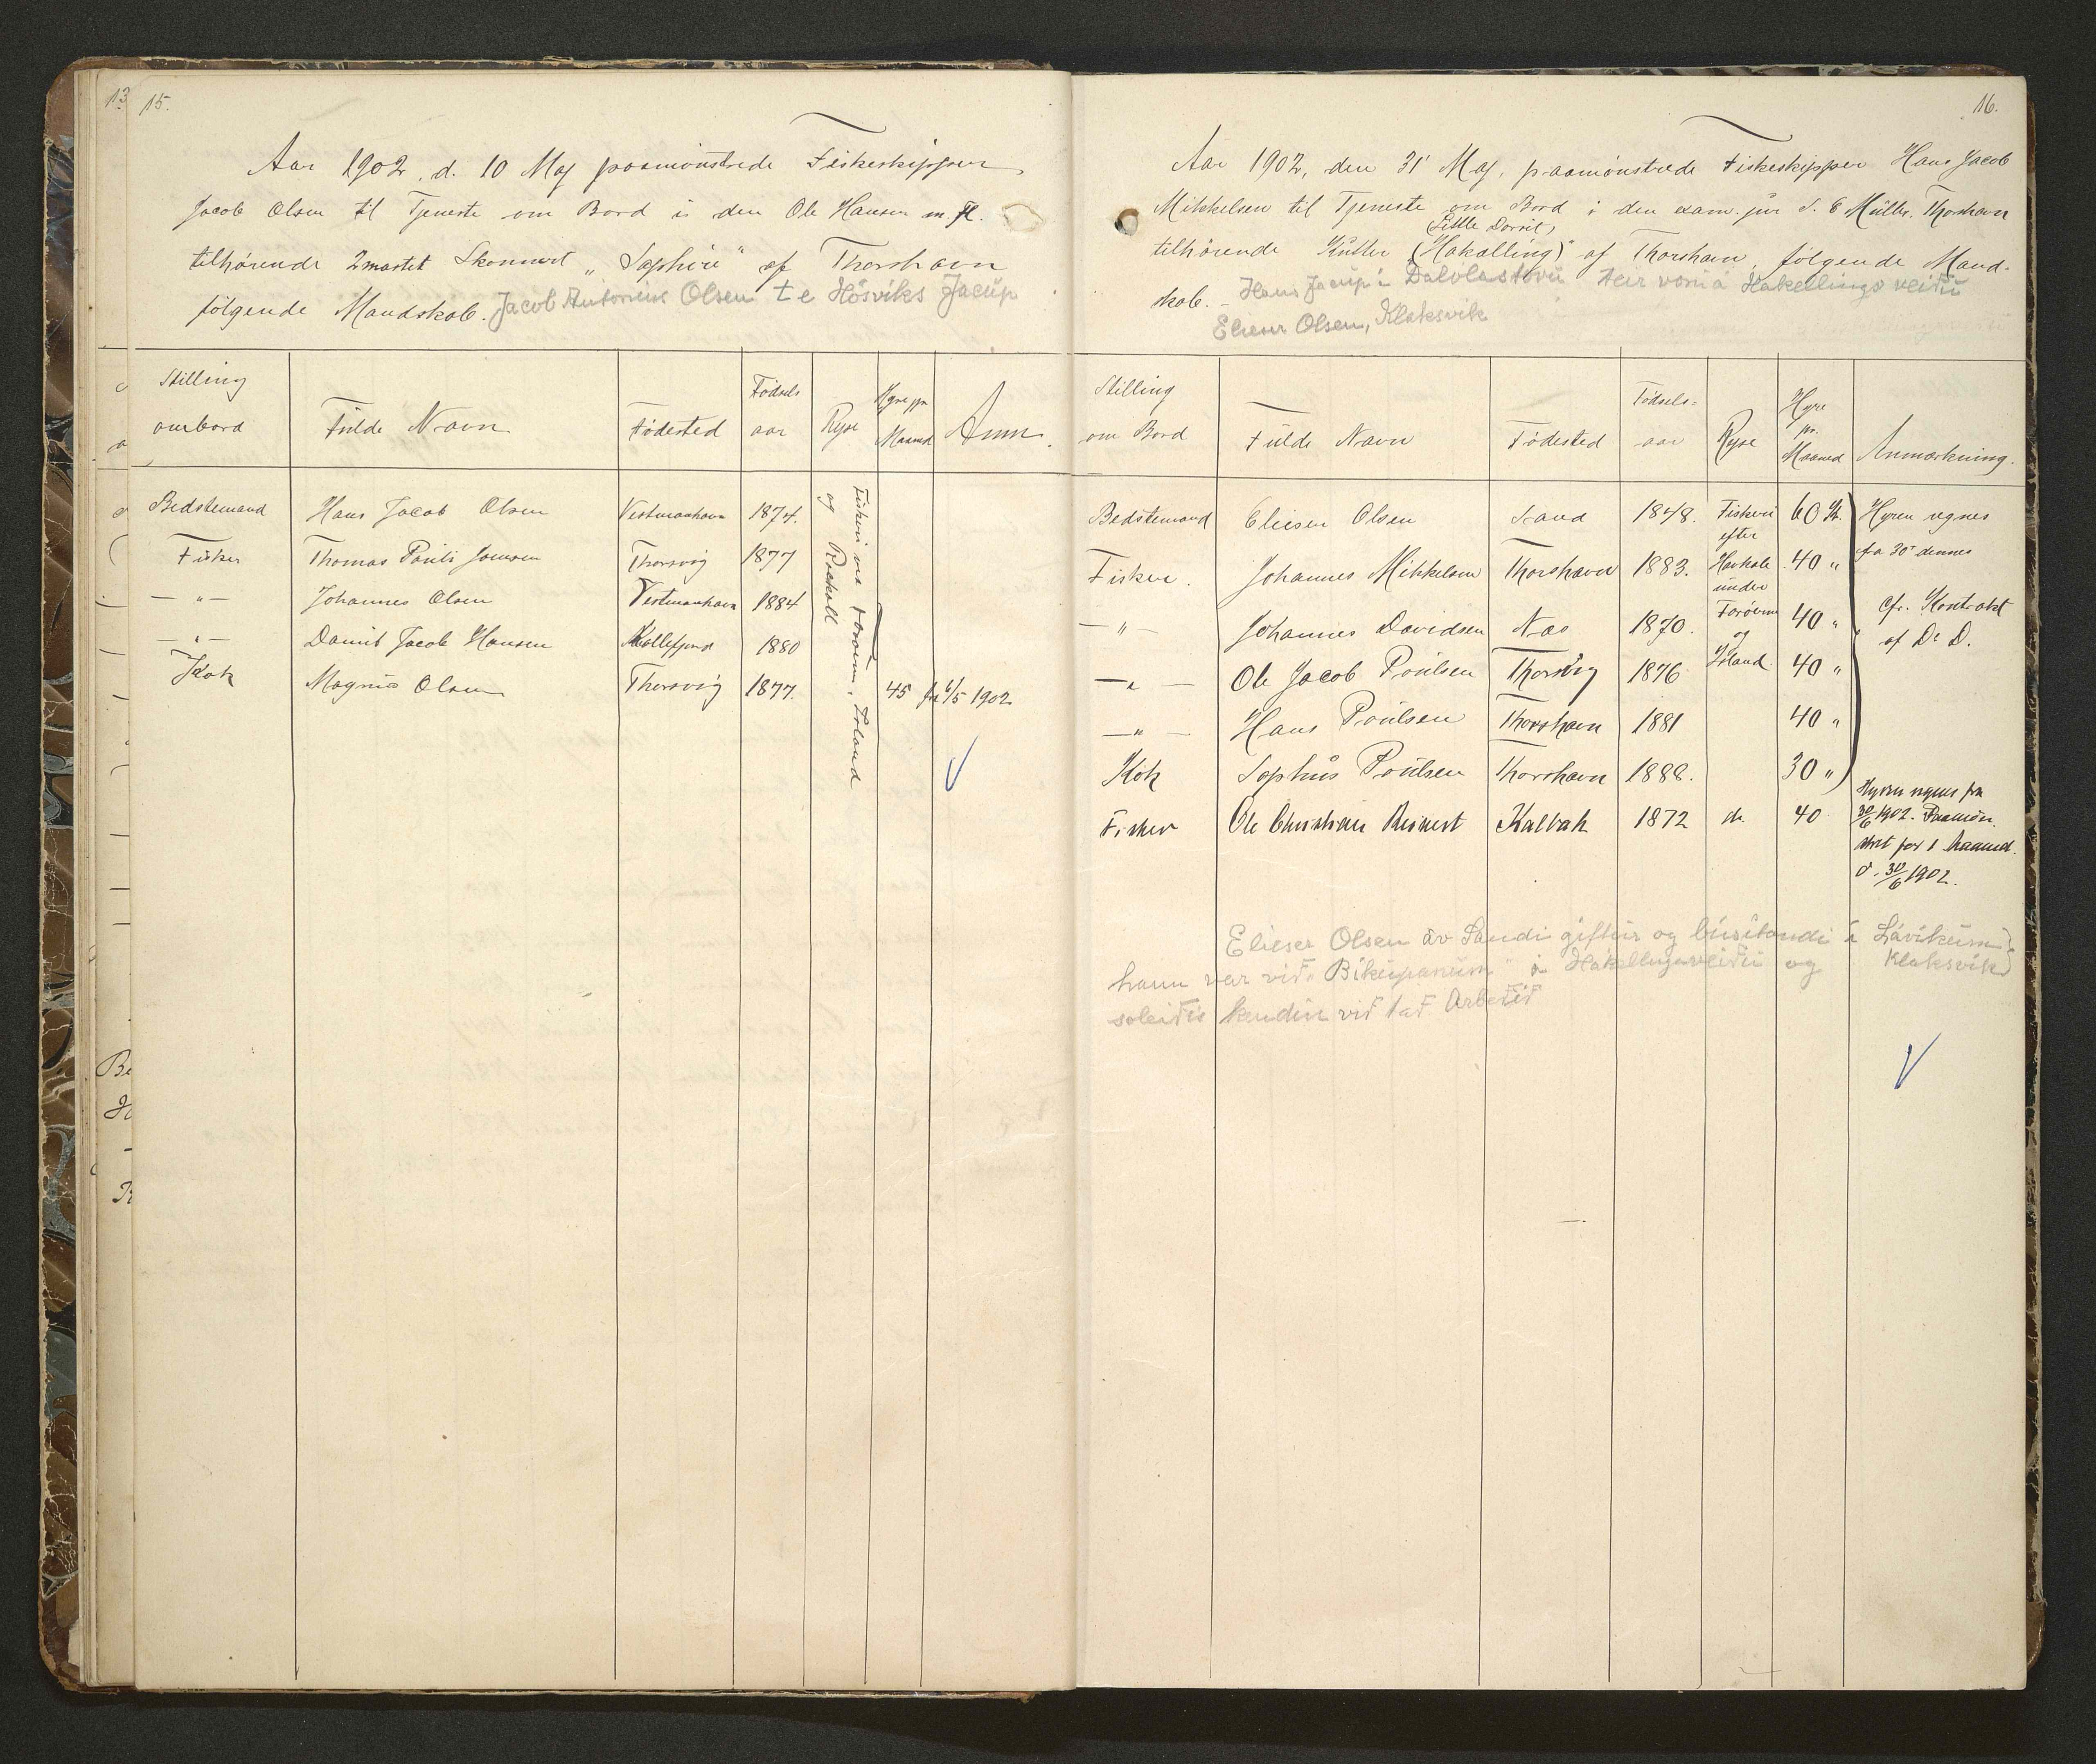 13
15.
Aar 1902, d. 10 Maj paamönstrede Fiskeskipper
Jacob Olsen til Tjeneste om Bord i den Ole Hansen m. fl.
tilhörende 2mastet Skonnert „Saphir“ af Thorshavn
fölgende Mandskab. Jacob Antonius Olsen t e Hósviks Jacup
Stilling ombord | Fulde Navn | Födested | Födsels aar | Rejse | Hyre pr Maaned | Anm.
Bedstemand | Hans Jacob Olsen | Vestmanhavn | 1874. | Fiskeri ved Færöerne, Island og Rockall
Fisker | Thomas Pauli Joensen | Thorsvig | 1877
— „ — | Johannes Olsen | Vestmanhavn | 1884
— „ — | Daniel Jacob Hansen | Kollefjord | 1880
Kok | Magnus Olsen | Thorsvig | 1877. | 45 | fra 6/5 1902
16.
Aar 1902, den 31' Maj, paamönstrede Fiskeskipper Hans Jacob
Mikkelsen til Tjeneste om Bord i den exam. jur S. E Müller, Thorshavn
(Little Dorrit)
tilhörende Kutter (Hakalling)“ af Thorshavn, fölgende Mand-
skab. – Hans Jacup í Dalvlastovu teir voru á Hakellingsveiðu
Elieser Olsen, Klaksvik
Stilling om Bord | Fulde Navn | Födested | Födsels= aar | Rejse | Hyre pr. Maaned | Anmærkning.
Bedstemand | Elieser Olsen | Sand | 1848. | Fiskeri efter | 60 Kr. | Hyren regnes
Fisker. | Johannes Mikkelsen | Thorshavn | 1883. | Havkale under | 40 „ | fra 30' dennes
— „ — | Johannes Davidsen | Næs | 1870. | Færöerne og | 40 „ | Cfr. Kontrakt
— „ — | Ole Jacob Poulsen | Thorsvig | 1876 | Island | 40 „ | af D. D.
— „ — | Hans Poulsen | Thorshavn | 1881 | 40 „
Kok | Sophus Poulsen | Thorshavn | 1888. | 30 „
Fisker | Ole Christian Reinert | Kalbak | 1872 | do. | 40 | Hyren regnes fra
30/6 1902. Paamön-
stret for 1 Maaned
d. 30/6 1902.
Elieser Olsen av Sandi giftur og búsitandi í Lávíkum
hann var við „Bikupanum“ á Hakellingaveiðu og Klaksvík
soleiðis kendur við tað Arbeðið